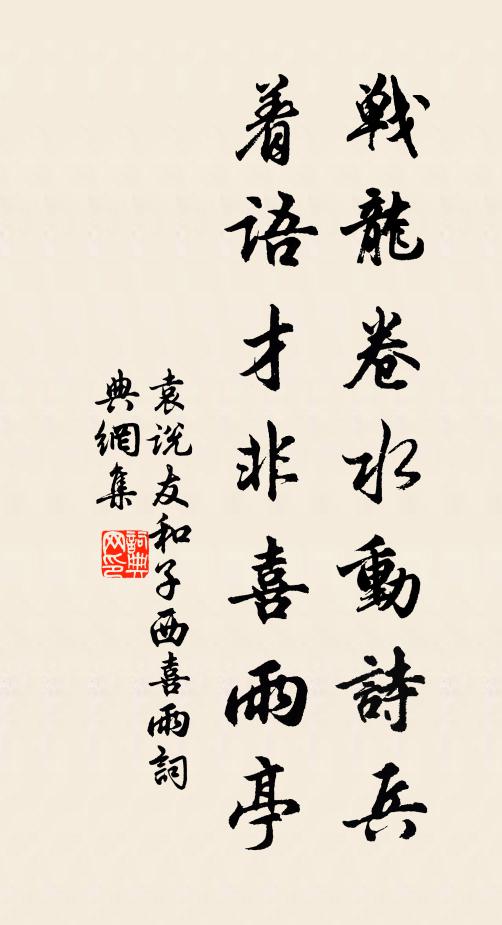 戦龍卷水動詩兵
着語才非喜雨亭
袁説友和子西喜雨詞
典網集
詞典網印